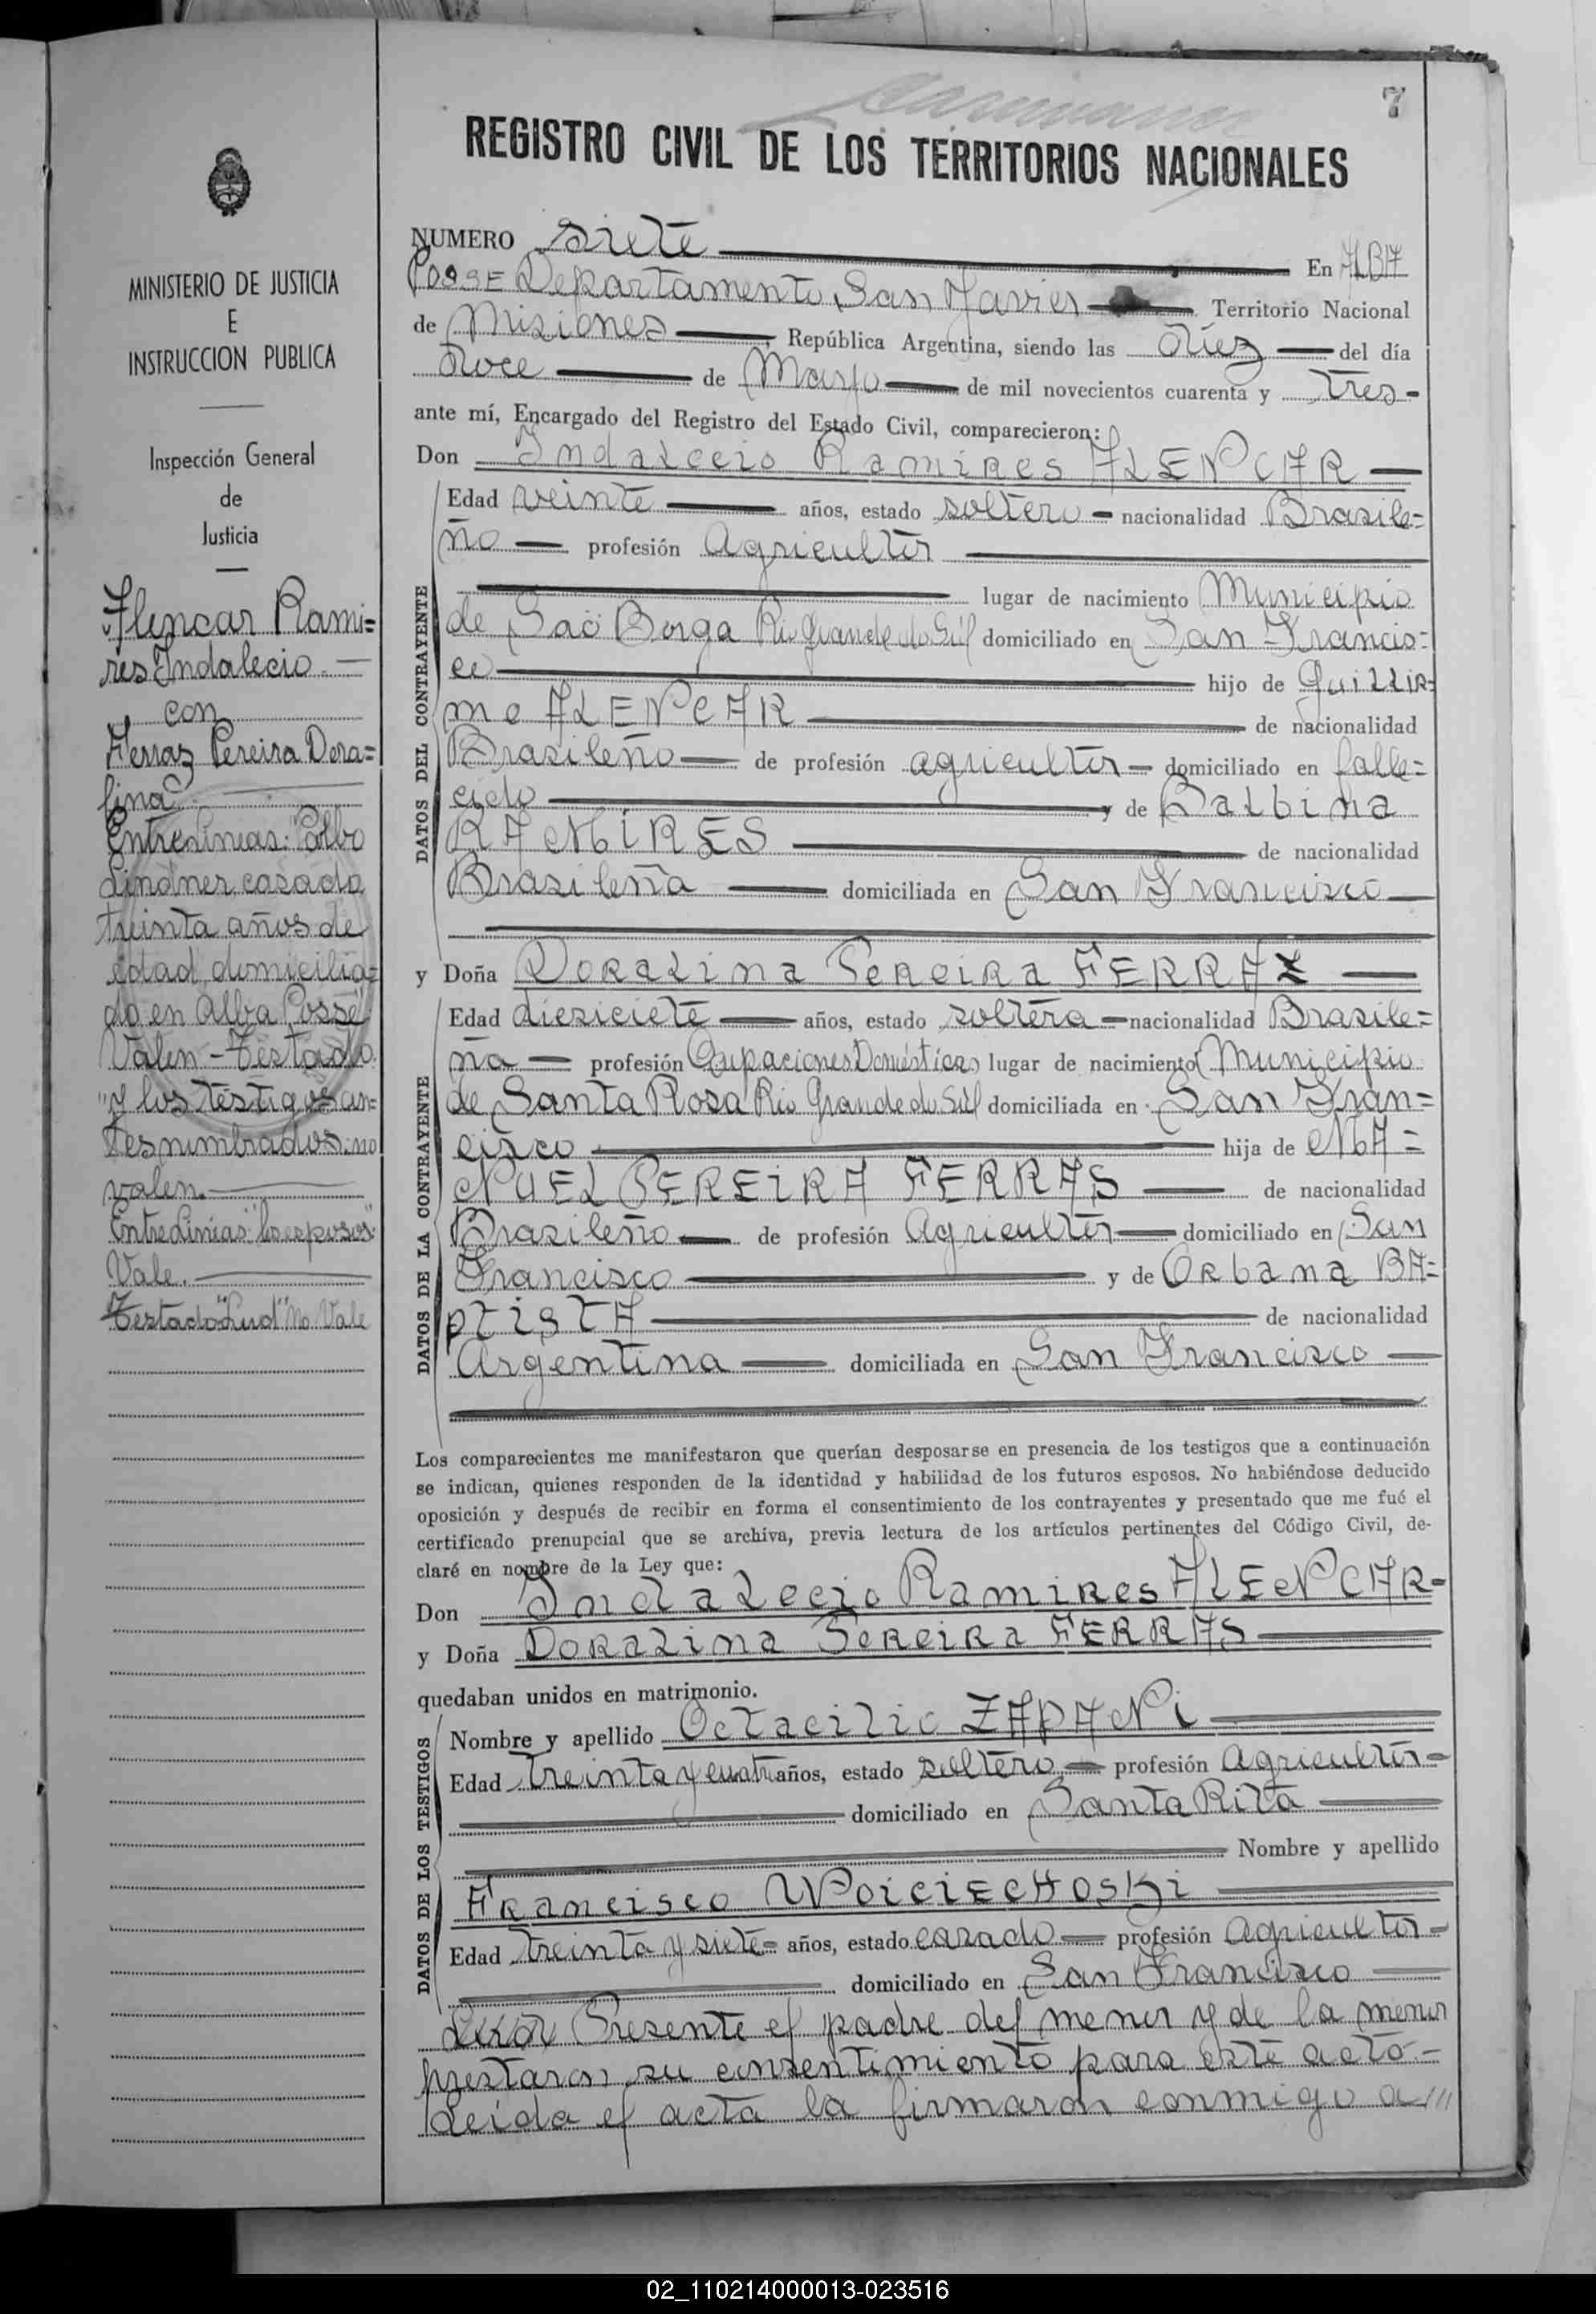 7
REGISTRO CIVIL DE LOS TERRITORIOS NACIONALES
MINISTERIO DE JUSTICIA
E
INSTRUCCION PUBLICA
Inspección General
de
Justicia
Alencar Rami=
res Indalecio.—
con
Ferraz Pereira Dora=
lina
EntreLineas: "Polbo
Lindner, casado
treinta años de
edad, domicilia=
do en Alba Posse"
Valen - Testado
"y los testigos an=
tes nombrados: no
valen.
EntreLineas: "los esposos"
Vale.
Testado "Lud" No Vale
NUMERO siete En ALBA
POSSE Departamento San Javier Territorio Nacional
de Misiones, República Argentina, siendo las diez del día
doce de Mayo de mil novecientos cuarenta y tres-
ante mí, Encargado del Registro del Estado Civil, comparecieron:
Don Indalecio Ramires ALENCAR
DATOS DEL CONTRAYENTE
Edad veinte años, estado soltero nacionalidad Brasile=
ño profesión Agricultor
lugar de nacimiento Municipio
de Sao Borga Rio Grande do Sul domiciliado en San Francis=
co hijo de Guillir=
mo ALENCAR de nacionalidad
Brasileño de profesión agricultor domiciliado en falle=
cido y de Balbina
RAMIRES de nacionalidad
Brasileña domiciliada en San Francisco
y Doña Doralina Pereira FERRAZ
DATOS DE LA CONTRAYENTE
Edad diesiciete años, estado soltera nacionalidad Brasile=
ña profesión Qupaciones Domésticas lugar de nacimiento Municipio
de Santa Rosa Rio Grande do Sul domiciliada en San Fran=
cisco hija de MA=
NUEL PEREIRA FERRAS de nacionalidad
Brasileño de profesión Agricultor domiciliado en San
Francisco y de Orbana BA=
PTISTA de nacionalidad
Argentina domiciliada en San Francisco
Los comparecientes me manifestaron que querían desposarse en presencia de los testigos que a continuación
se indican, quienes responden de la identidad y habilidad de los futuros esposos. No habiéndose deducido
oposición y después de recibir en forma el consentimiento de los contrayentes y presentado que me fué el
certificado prenupcial que se archiva, previa lectura de los artículos pertinentes del Código Civil, de-
claré en nombre de la Ley que:
Don Indalecio Ramires ALENCAR-
y Doña Doralina Pereira FERRAS
quedaban unidos en matrimonio.
DATOS DE LOS TESTIGOS
Nombre y apellido Octacilio ZAPANI
Edad treinta y cuatro años, estado soltero profesión Agricultor-
domiciliado en Santa Rita
Nombre y apellido
Francisco WOICIECHOSKI
Edad treinta y siete= años, estado casado profesión Agricultor-
domiciliado en San Francisco
Presente el padre del menor y de la menor
prestaron su consentimiento para este acto-
Leida el acta la firmaron conmigo a///
02_110214000013-023516